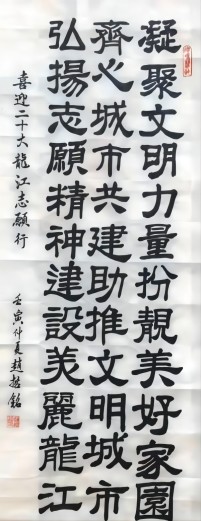 凝聚文明力量扮靚美好家園
齊心城市共建助推文明城市
弘揚志願精神建設美麗龍江
喜迎二十大龍江志願行
壬寅仲夏趙哲銘